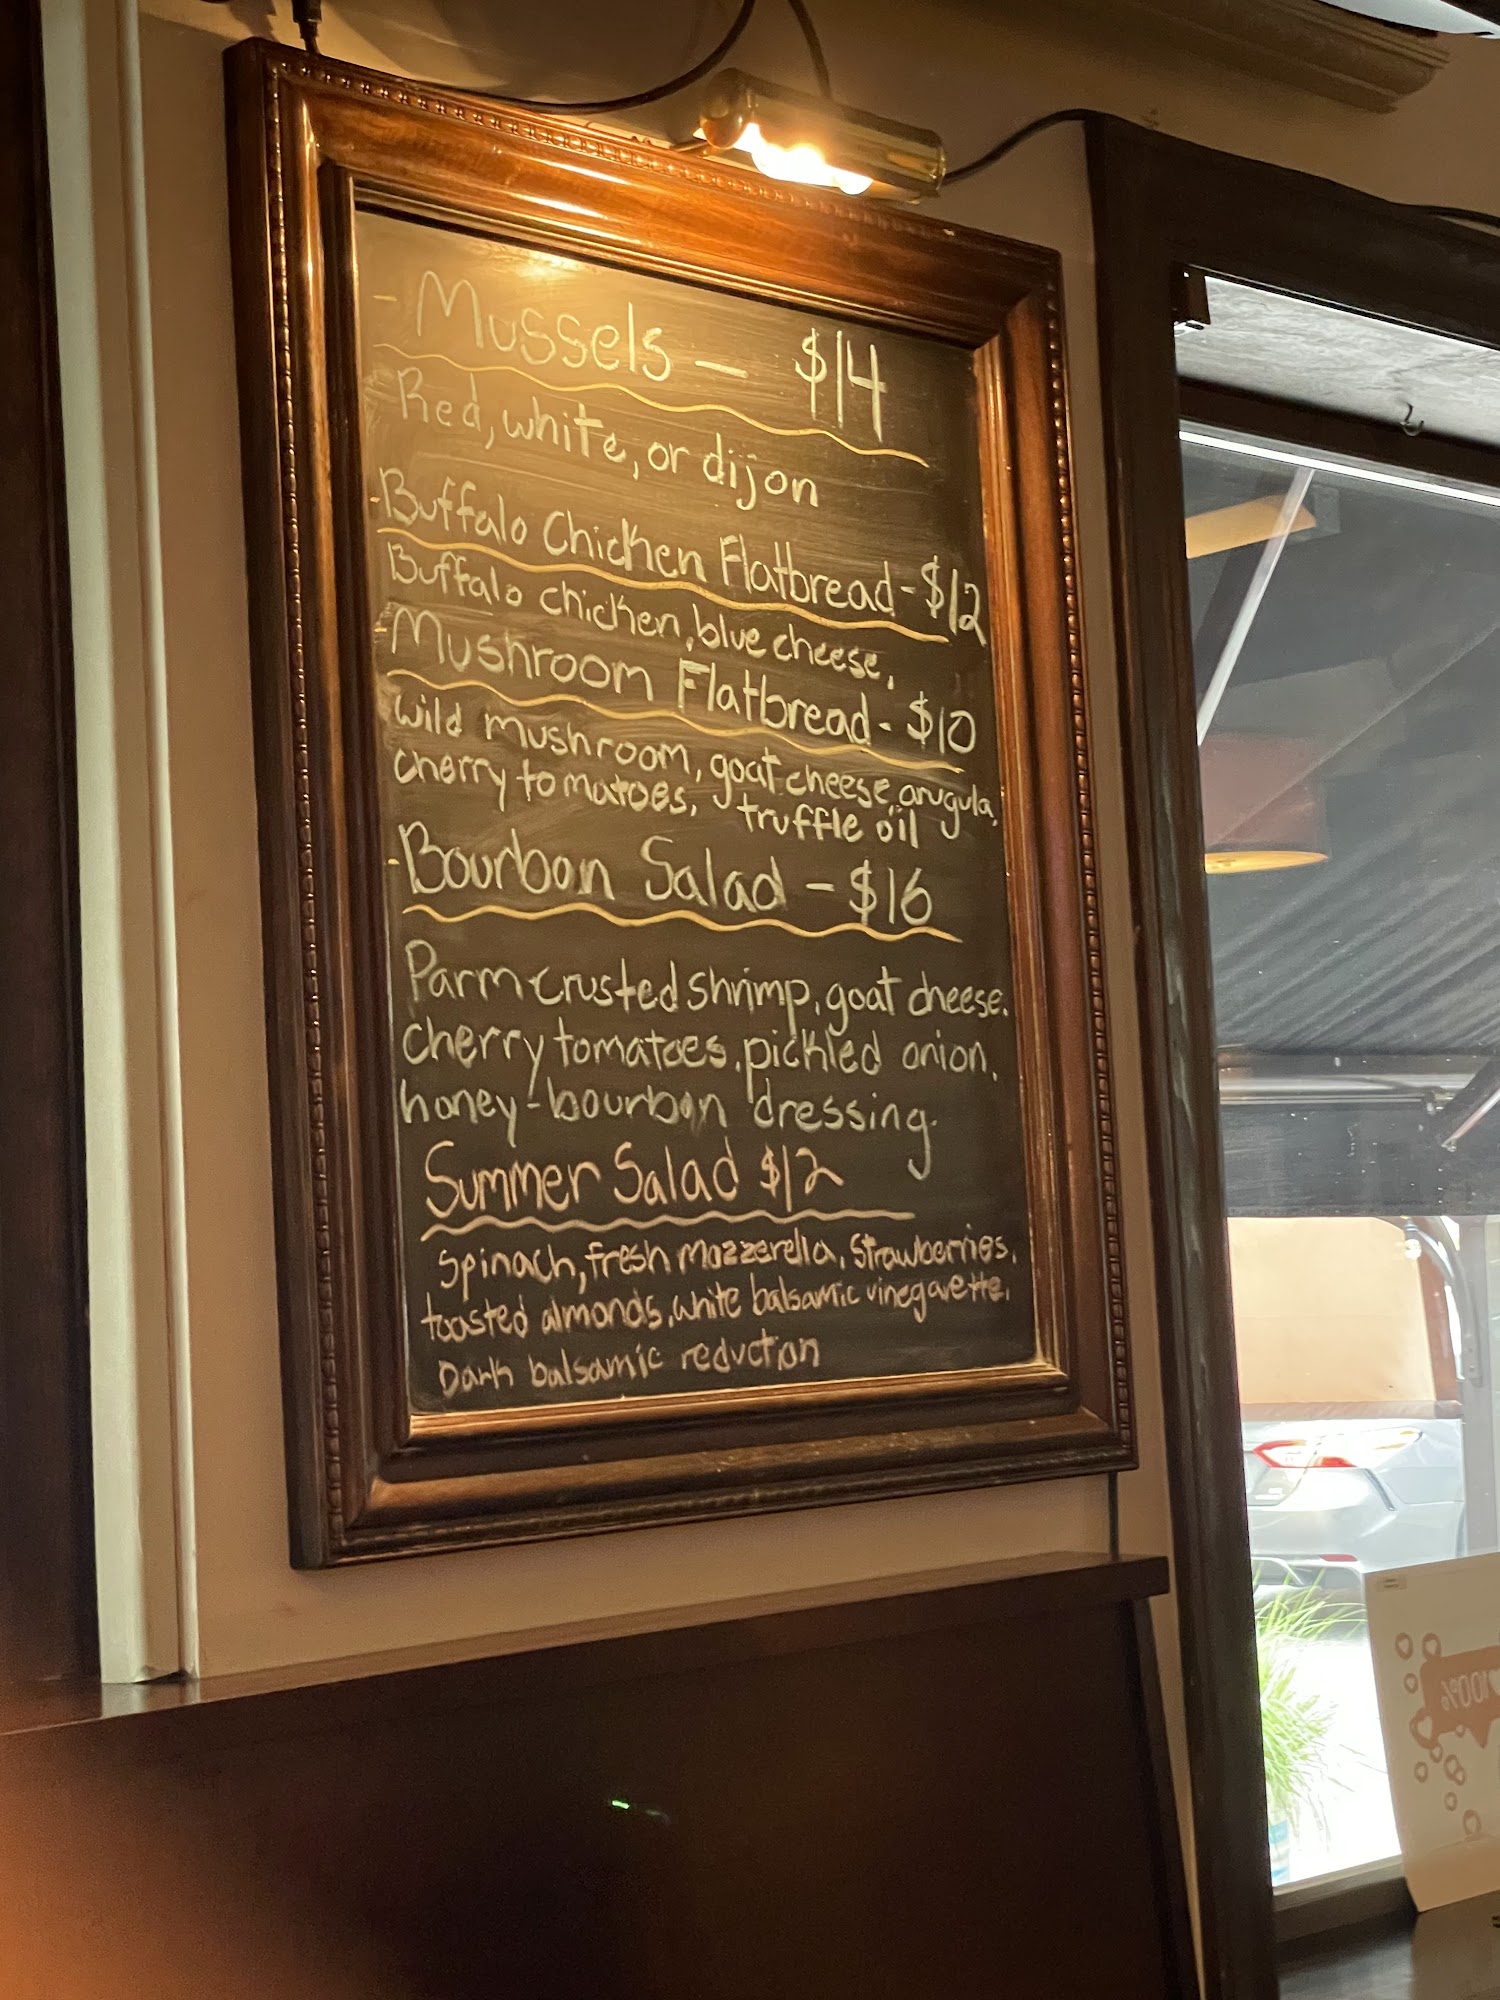 - Mussels — $14
Red, white, or dijon
-Buffalo Chicken Flatbread - $12
Buffalo chicken, blue cheese,
-Mushroom Flatbread - $10
Wild mushroom, goat cheese, arugula,
cherry tomatoes, truffle oil
-Bourbon Salad - $16
Parm crusted shrimp, goat cheese,
cherry tomatoes, pickled onion,
honey-bourbon dressing.
Summer Salad $12
Spinach, fresh mozzerella, strawberries,
toasted almonds, white balsamic vinegarette,
Dark balsamic reduction
100%